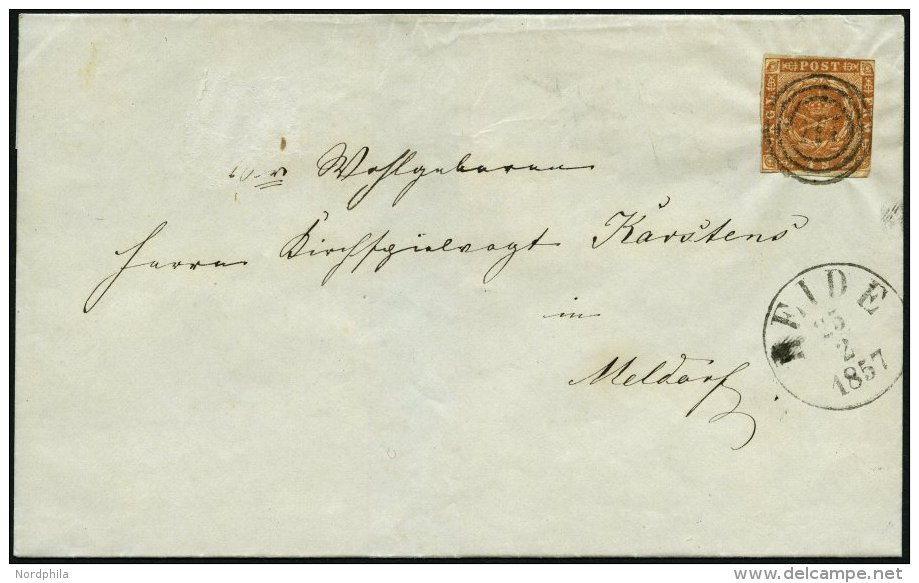 POST
Wohlgeboren
Herrn Kirchspielvogt Karstens
in
Meldorf
HEIDE
23
2
1857
Nordphila
delcampe.net